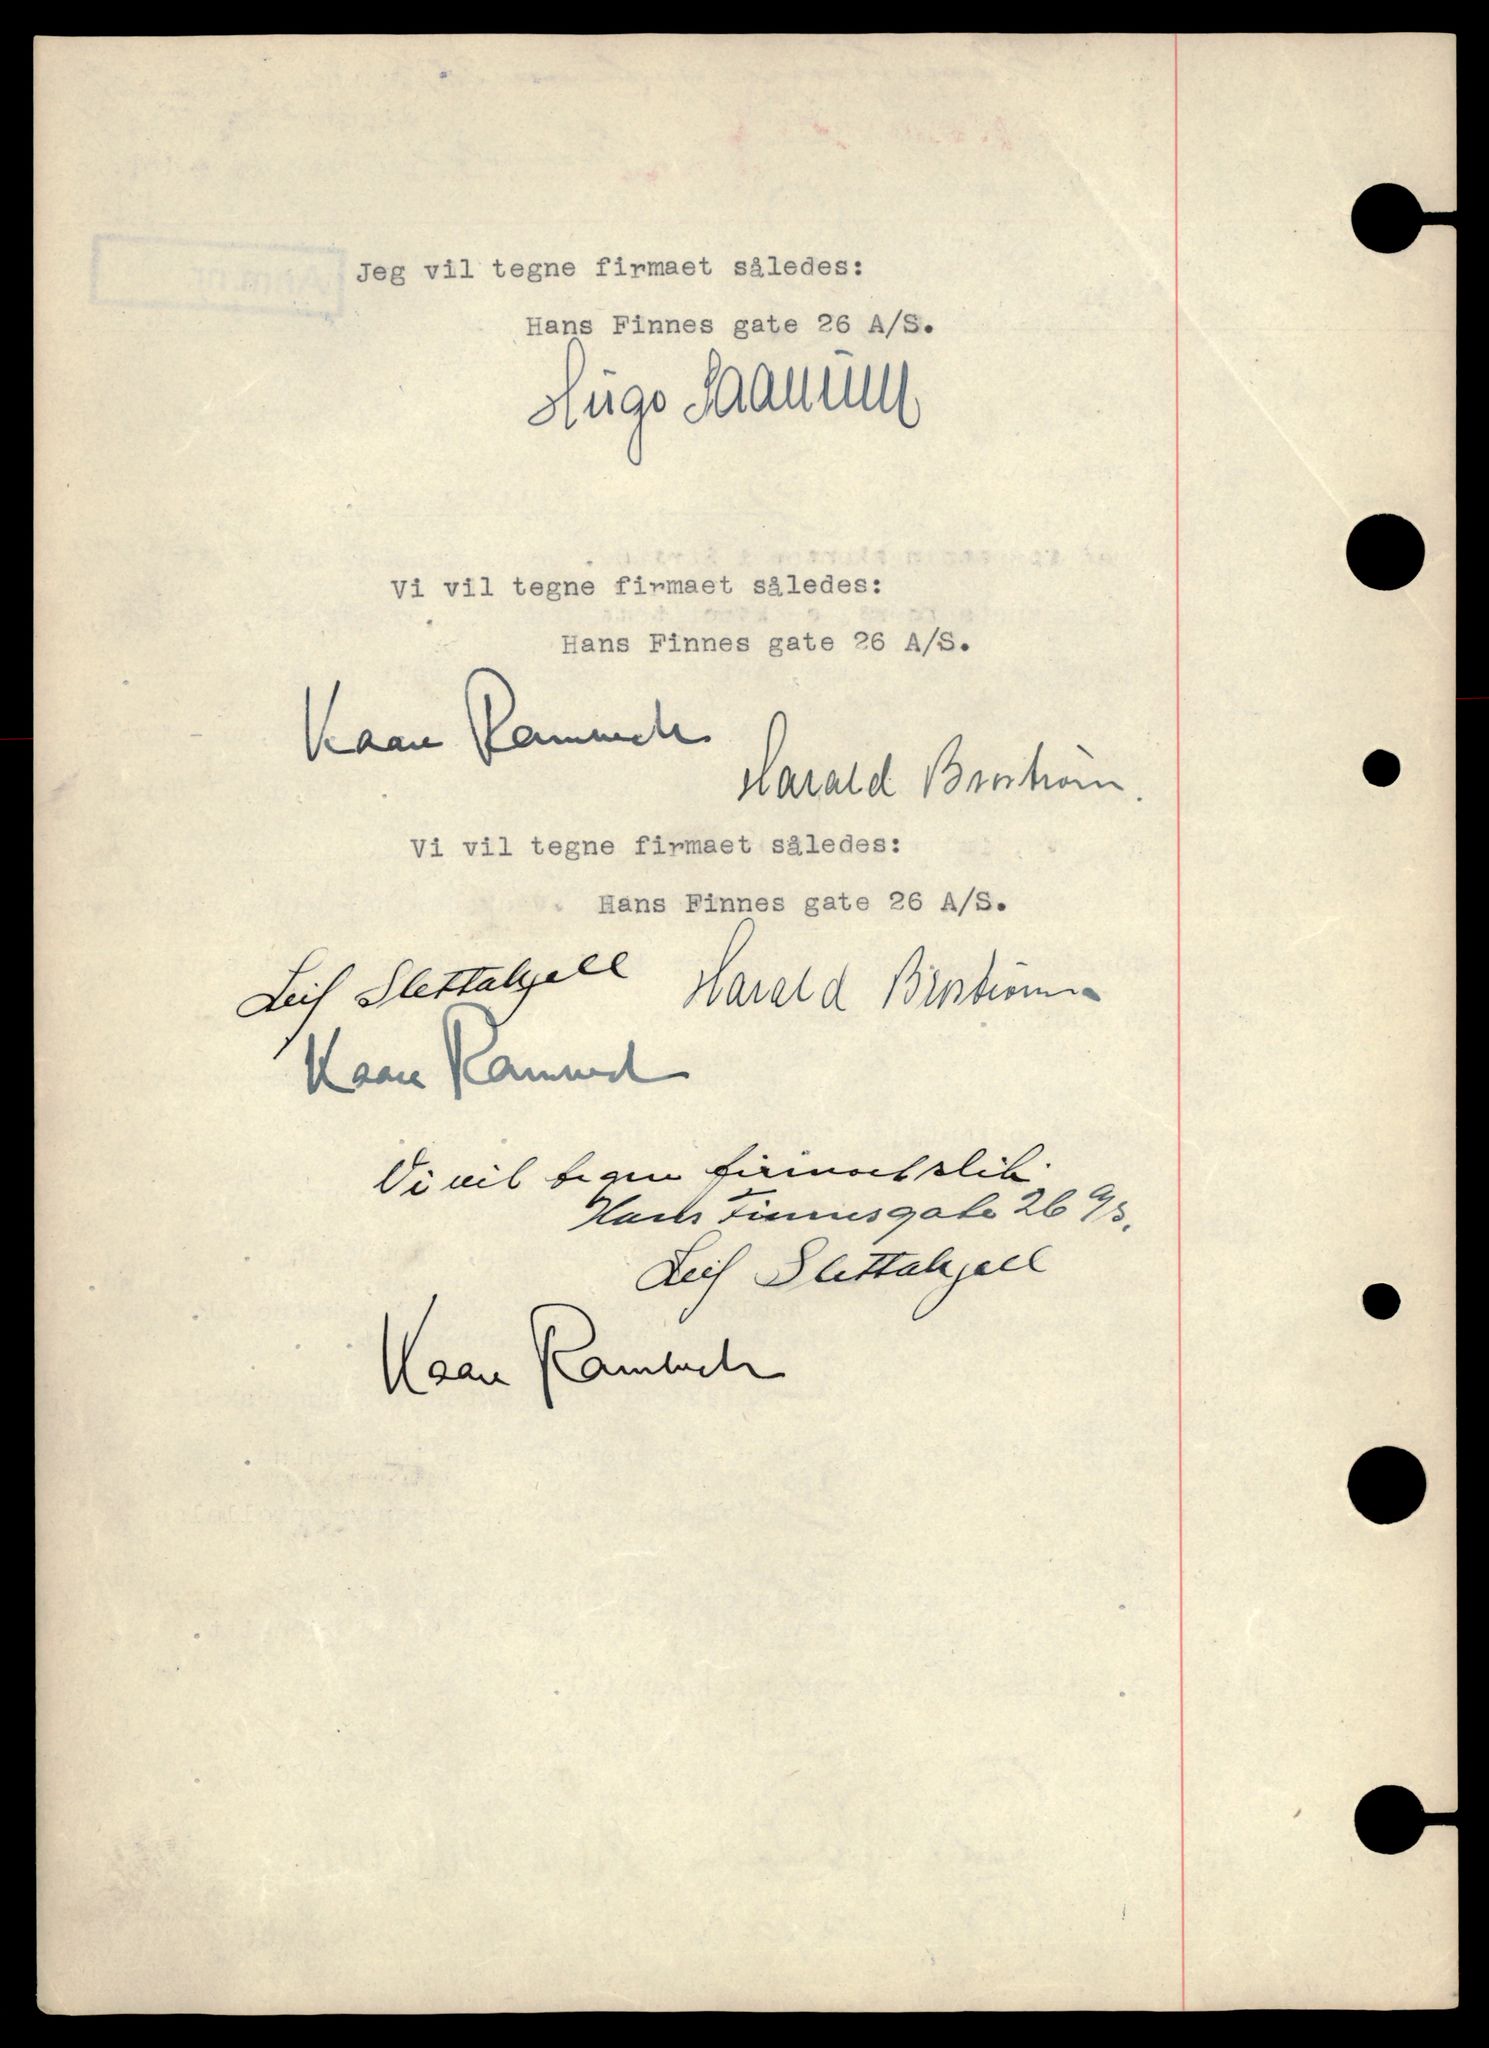 Jeg vil tegne firmaet således:
Hans Finnes gate 26 A/S.
Hugo
Vi vil tegne firmaet således:
Hans Finnes gate 26 A/S.
Kaare
Harald Broström.
Vi vil tegne firmaet således:
Hans Finnes gate 26 A/S.
Leif Slettahjell
Harald Broström
Kaare
Vi vil tegne firmaet slik:
Hans Finnesgate 26 A/S.
Leif Slettahjell
Kaare